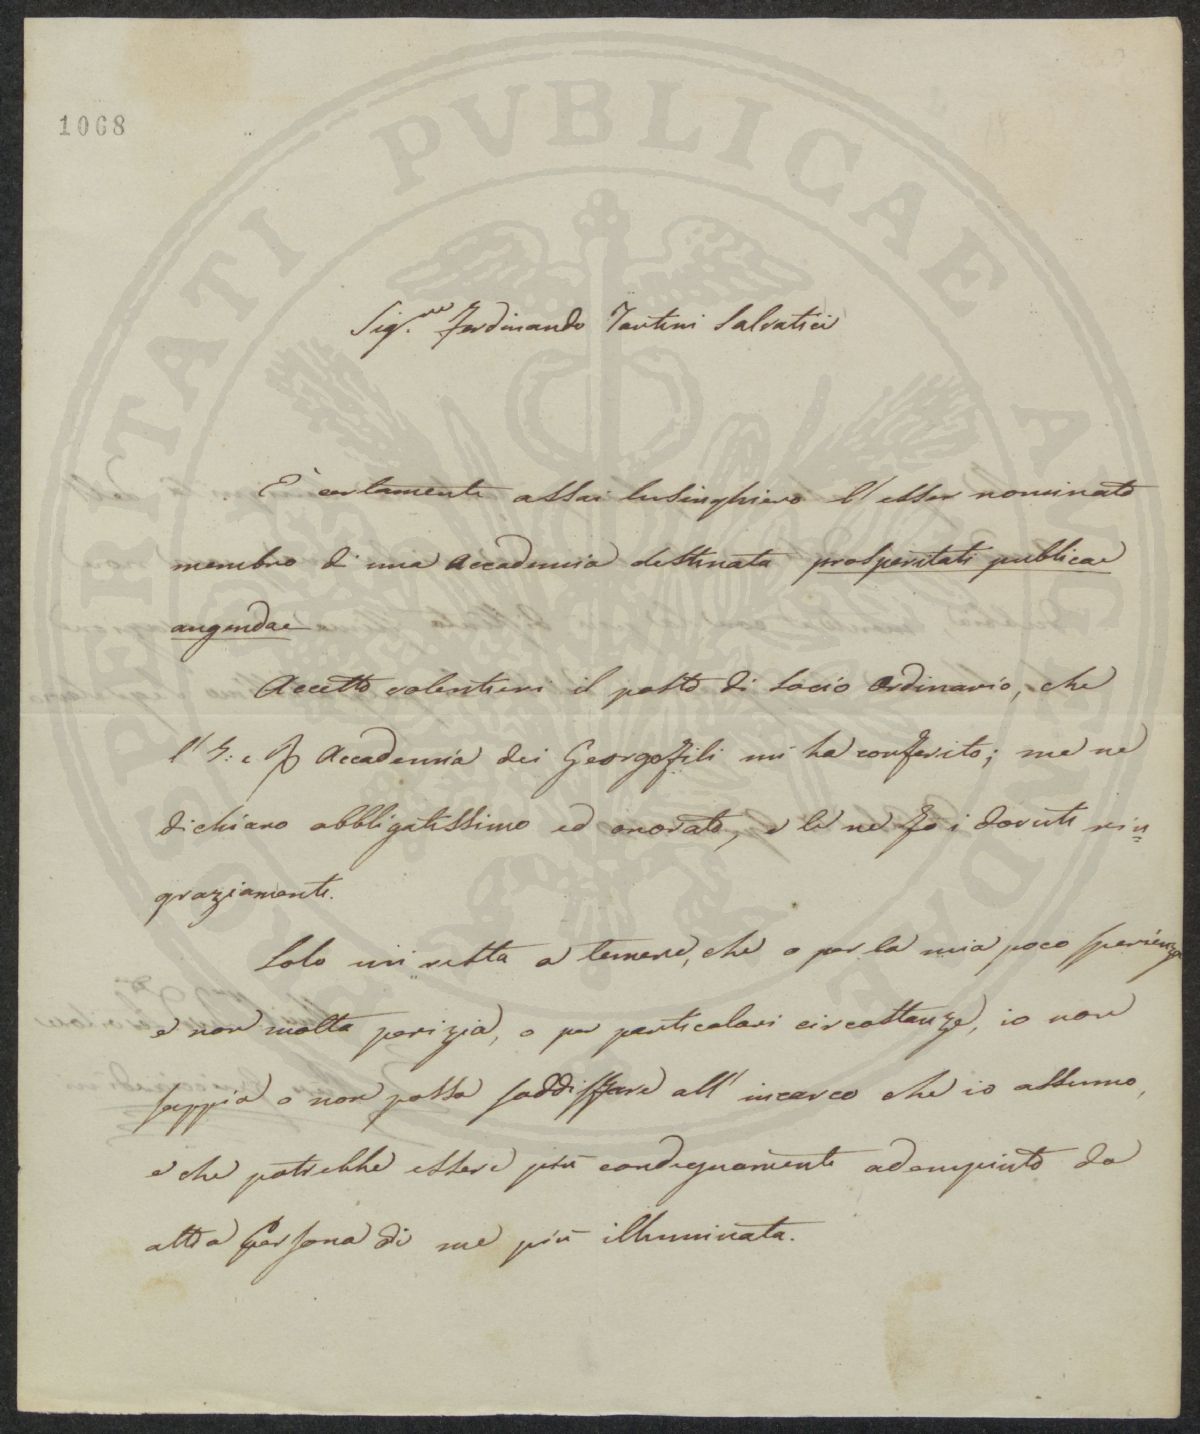 PROSPERITATI PVBLICAE AVGENDAE
1068
Sig.re Ferdinando Tartini Salvatici
È certamente assai lusinghiero l'esser nominato
membro di una Accademia destinata prosperitati publicae
augendae
Accetto volentieri il posto di Socio Ordinario, che
l' I: e R Accademia dei Georgofili mi ha conferito; me ne
dichiaro obbligatissimo ed onorato, e le ne fo i dovuti rin=
graziamenti.
Solo mi resta a temere, che o per la mia poco sperienza
e non molta perizia, o per particolari circostanze, io non
sappia o non possa soddisfare all' incarco che io assumo,
e che potrebbe essere più condegnamente adempiuto da
altra Persona di me più illuminata.